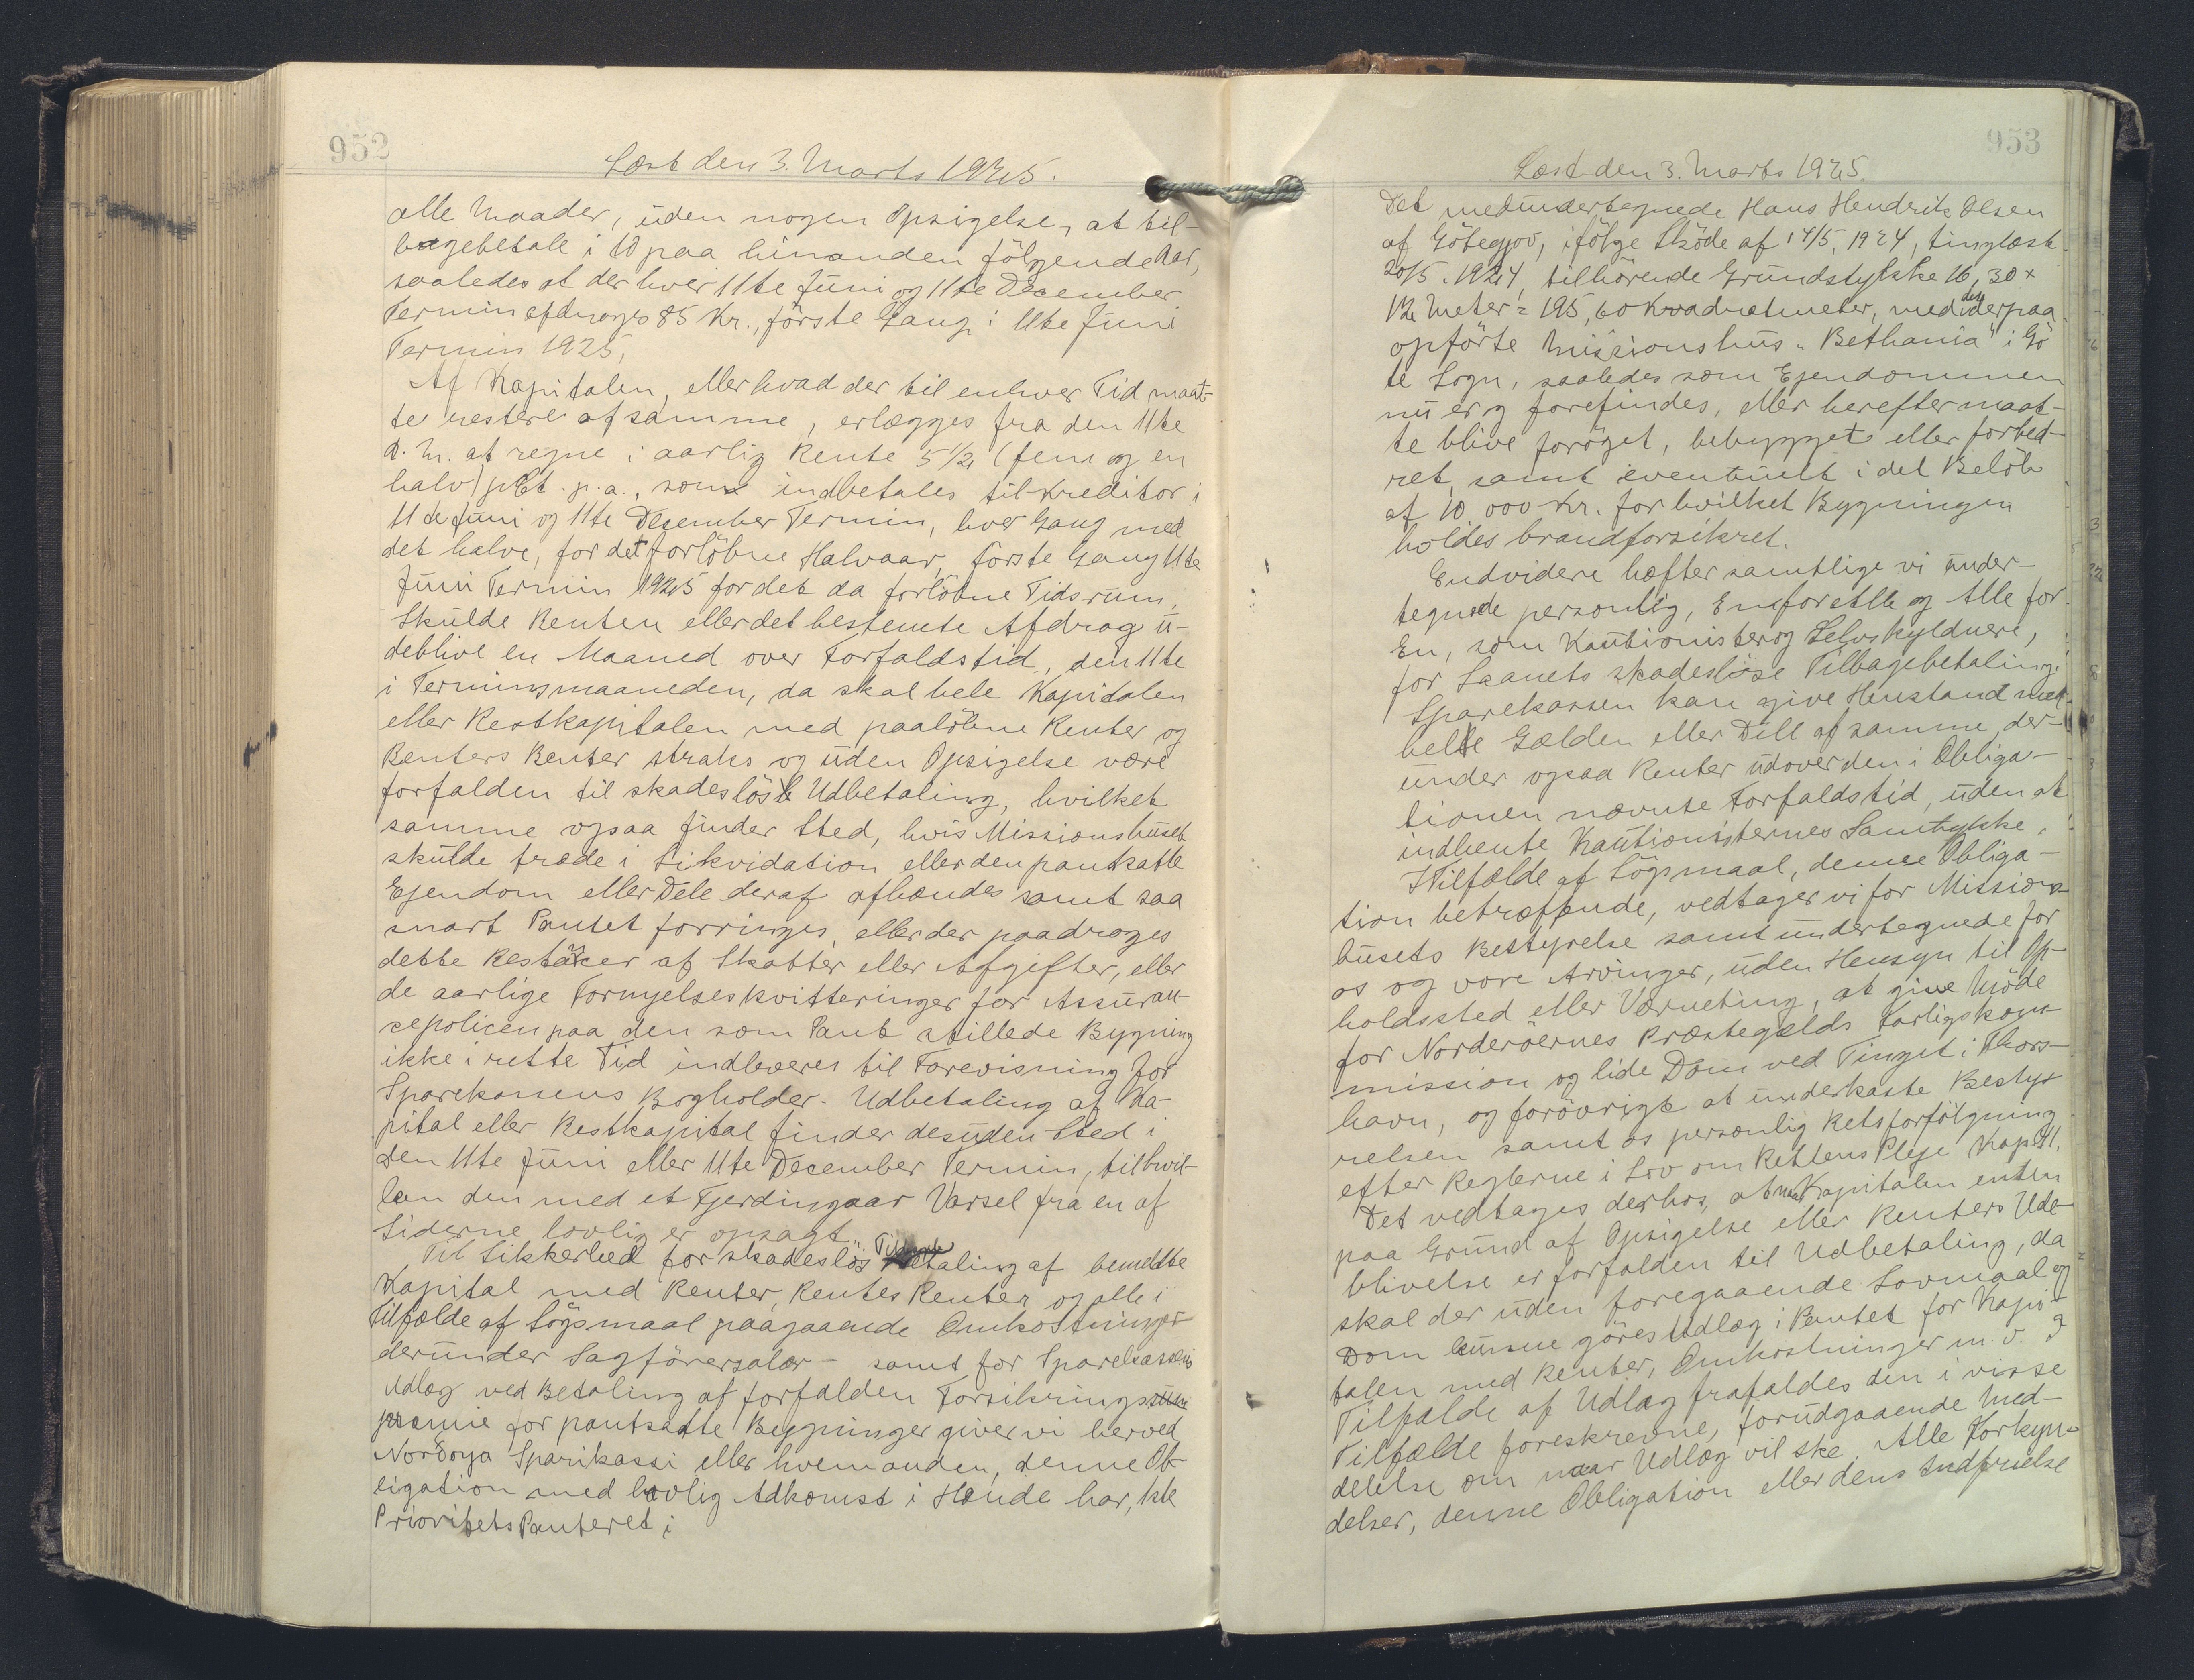 952
Læst den 3. Marts 1925.
alle Maader, uden nogen Opsigelse, at til-
bagebetale i 10 paa hinanden følgende Aar,
saaledes at der hver 11te Juni og 11te December
Termin afdrages 85 Kr., förste Gang i 11te Juni
Termin 1925.
Af Kapitalen, eller hvad der til enhver Tid maat-
te restere af samme, erlægges fra den 11te
d. M. at regne i aarlig Rente 5 1/2 (fem og en
halv) pCt. p.a., som indbetales til Kreditor i
11te Juni og 11te December Termin, hver Gang med
det halve, for det forlöbne Halvaar, förste Gang 11te
Juni Termin 1925 for det da forlöbne Tidsrum.
Skulde Renten eller det bestemte Afdrag u-
deblive en Maaned over Forfaldstid, den 11te
i Terminsmaaneden, da skal hele Kapitalen
eller Restkapitalen med paalöbne Renter og
Renters Renter straks og uden Opsigelse være
forfalden til skadeslös Udbetaling, hvilket
samme ogsaa finder Sted, hvis Missionshuset
skulde træde i Likvidation eller den pantsatte
Ejendom eller Dele deraf afhændes samt saa
snart Pantet forringes, eller der paadrages
dette Restancer af Skatter eller Afgifter, eller
de aarlige Fornyelseskvitteringer for Assuran-
cepolicen paa den som Pant stillede Bygning
ikke i rette Tid indleveres til Forevisning for
Sparekassens Bogholder. Udbetaling af Ka-
pital eller Restkapital finder desuden Sted i
den 11te Juni eller 11te December Termin, til hvil-
ken den med et Fjerdingaar Varsel fra en af
Siderne lovlig er opsagt.
Til Sikkerhed for skadeslös Tilbagebetaling af bemeldte
Kapital med Renter, Rentes Renter og alle i
Tilfælde af Sögsmaal paagaaende Omkostninger
derunder Sagförersalær - samt for Sparekassens
Udlæg ved Betaling af forfalden Forsikrings
præmie for pantsatte Bygninger giver vi herved
Norðoya Sparikassi eller hvem anden, denne Ob-
ligation med lovlig Adkomst i Hænde har, 1ste
Prioritets Panteret i
953
Læst den 3. Marts 1925.
Det medundertegnede Hans Hendrik Olsen
af Götegjov, ifölge Sköde af 14/5. 1924, tinglæst
20/5. 1924, tilhörende Grundstykke 16,30 x
12 Meter = 195,60 Kvadratmeter, med det derpaa
opförte Missionshus "Bethania" i Gö
te Sogn, saaledes som Ejendommen
nu er og forefindes, eller herefter maat-
te blive foröget, bebygget eller forbed-
ret, samt eventuelt i det Belöb
af 10 000 Kr. for hvilket Bygningen
holdes brandforsikret.
Endvidere hæfter samtlige vi under-
tegnede personlig, En for Alle og Alle for
En, som Kautionister og Selvskyldnere,
for Laanets skadeslöse Tilbagebetaling.
Sparekassen kan give Henstand med
hele Gælden eller Dele af samme, der-
under ogsaa Renter udover den i Obliga-
tionen nævnte Forfaldstid, uden at
indhente Kautionisternes Samtykke.
I Tilfælde af Sögsmaal, denne Obliga-
tion betræffende, vedtager vi for Missions-
husets Bestyrelse samt undertegnede for
os og vore Arvinger, uden Hensyn til Op-
holdssted eller Værneting, at give Möde
for Norderöernes Præstegælds Forligskom-
mission og lide Dom ved Tinget i Thors-
havn, og forövrigt at underkaste Besty-
relsen samt os personlig Retsforfölgning
efter Reglerne i Lov om Rettens Pleje Kap. 41.
Det vedtages derhos, at naar Kapitalen enten
paa Grund af Opsigelse eller Renters Ude-
blivelse er forfalden til Udbetaling, da
skal der uden foregaaende Lovmaal og
Dom kunne göres Udlæg i Pantet for Kapi-
talen med Renter, Omkostninger m.v. I
Tilfælde af Udlæg frafaldes den i visse
Tilfælde foreskrevne, forudgaaende Med-
delelse om naar Udlæg vil ske. Alle Forkyn-
delser, denne Obligation eller dens Indfrielse